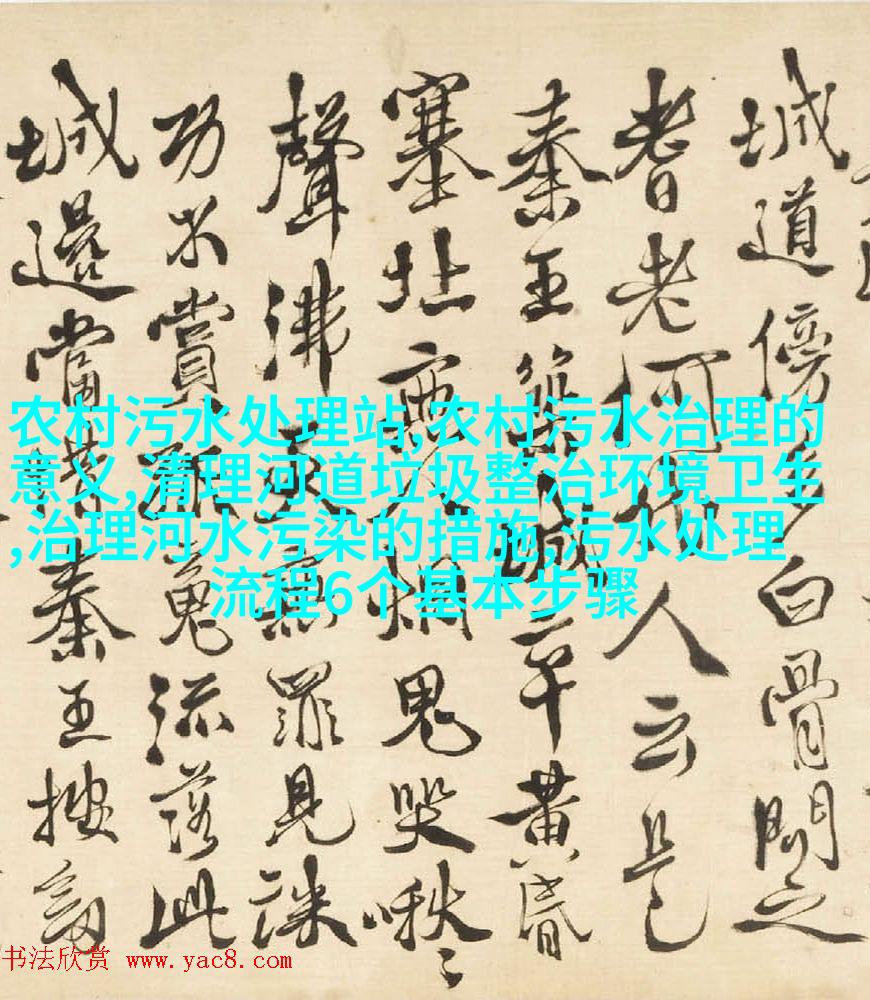 城道傍多白骨問之
耆老何代人云是
秦王築城卒黄昏
塞北無人烟鬼哭啾〻
聲沸天無罪見誅
功不賞孤魂流落此
城邊當昔秦王按劒
农村污水处理站,农村污水治理的
意义,清理河道垃圾整治环境卫生
,治理河水污染的措施,污水处理
流程6个基本步骤
书法欣赏 www.yac8.com